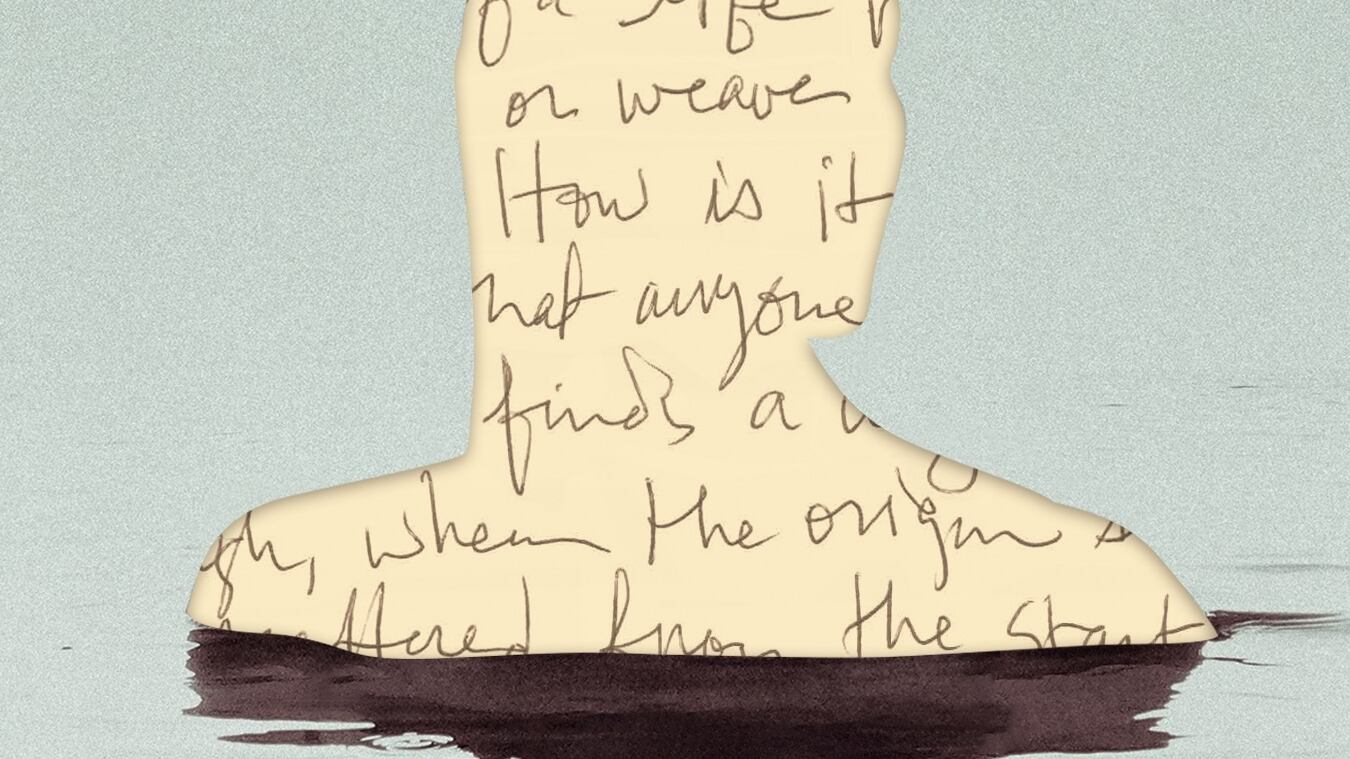 of a life
or weave
How is it
hat anyone
finds a
gh, when the origin s
attered from the start